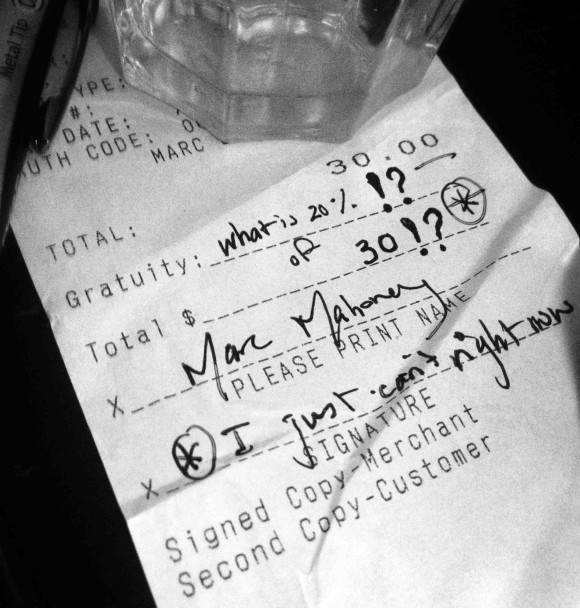 Metal Tip
YPE:
#:
DATE:
UTH CODE:
MARC
TOTAL: 30.00
Gratuity: what is 20% !?
of
Total $ 30!? *
X Marc Mahoney
PLEASE PRINT NAME
X * I just can't right now
SIGNATURE
Signed Copy-Merchant
Second Copy-Customer